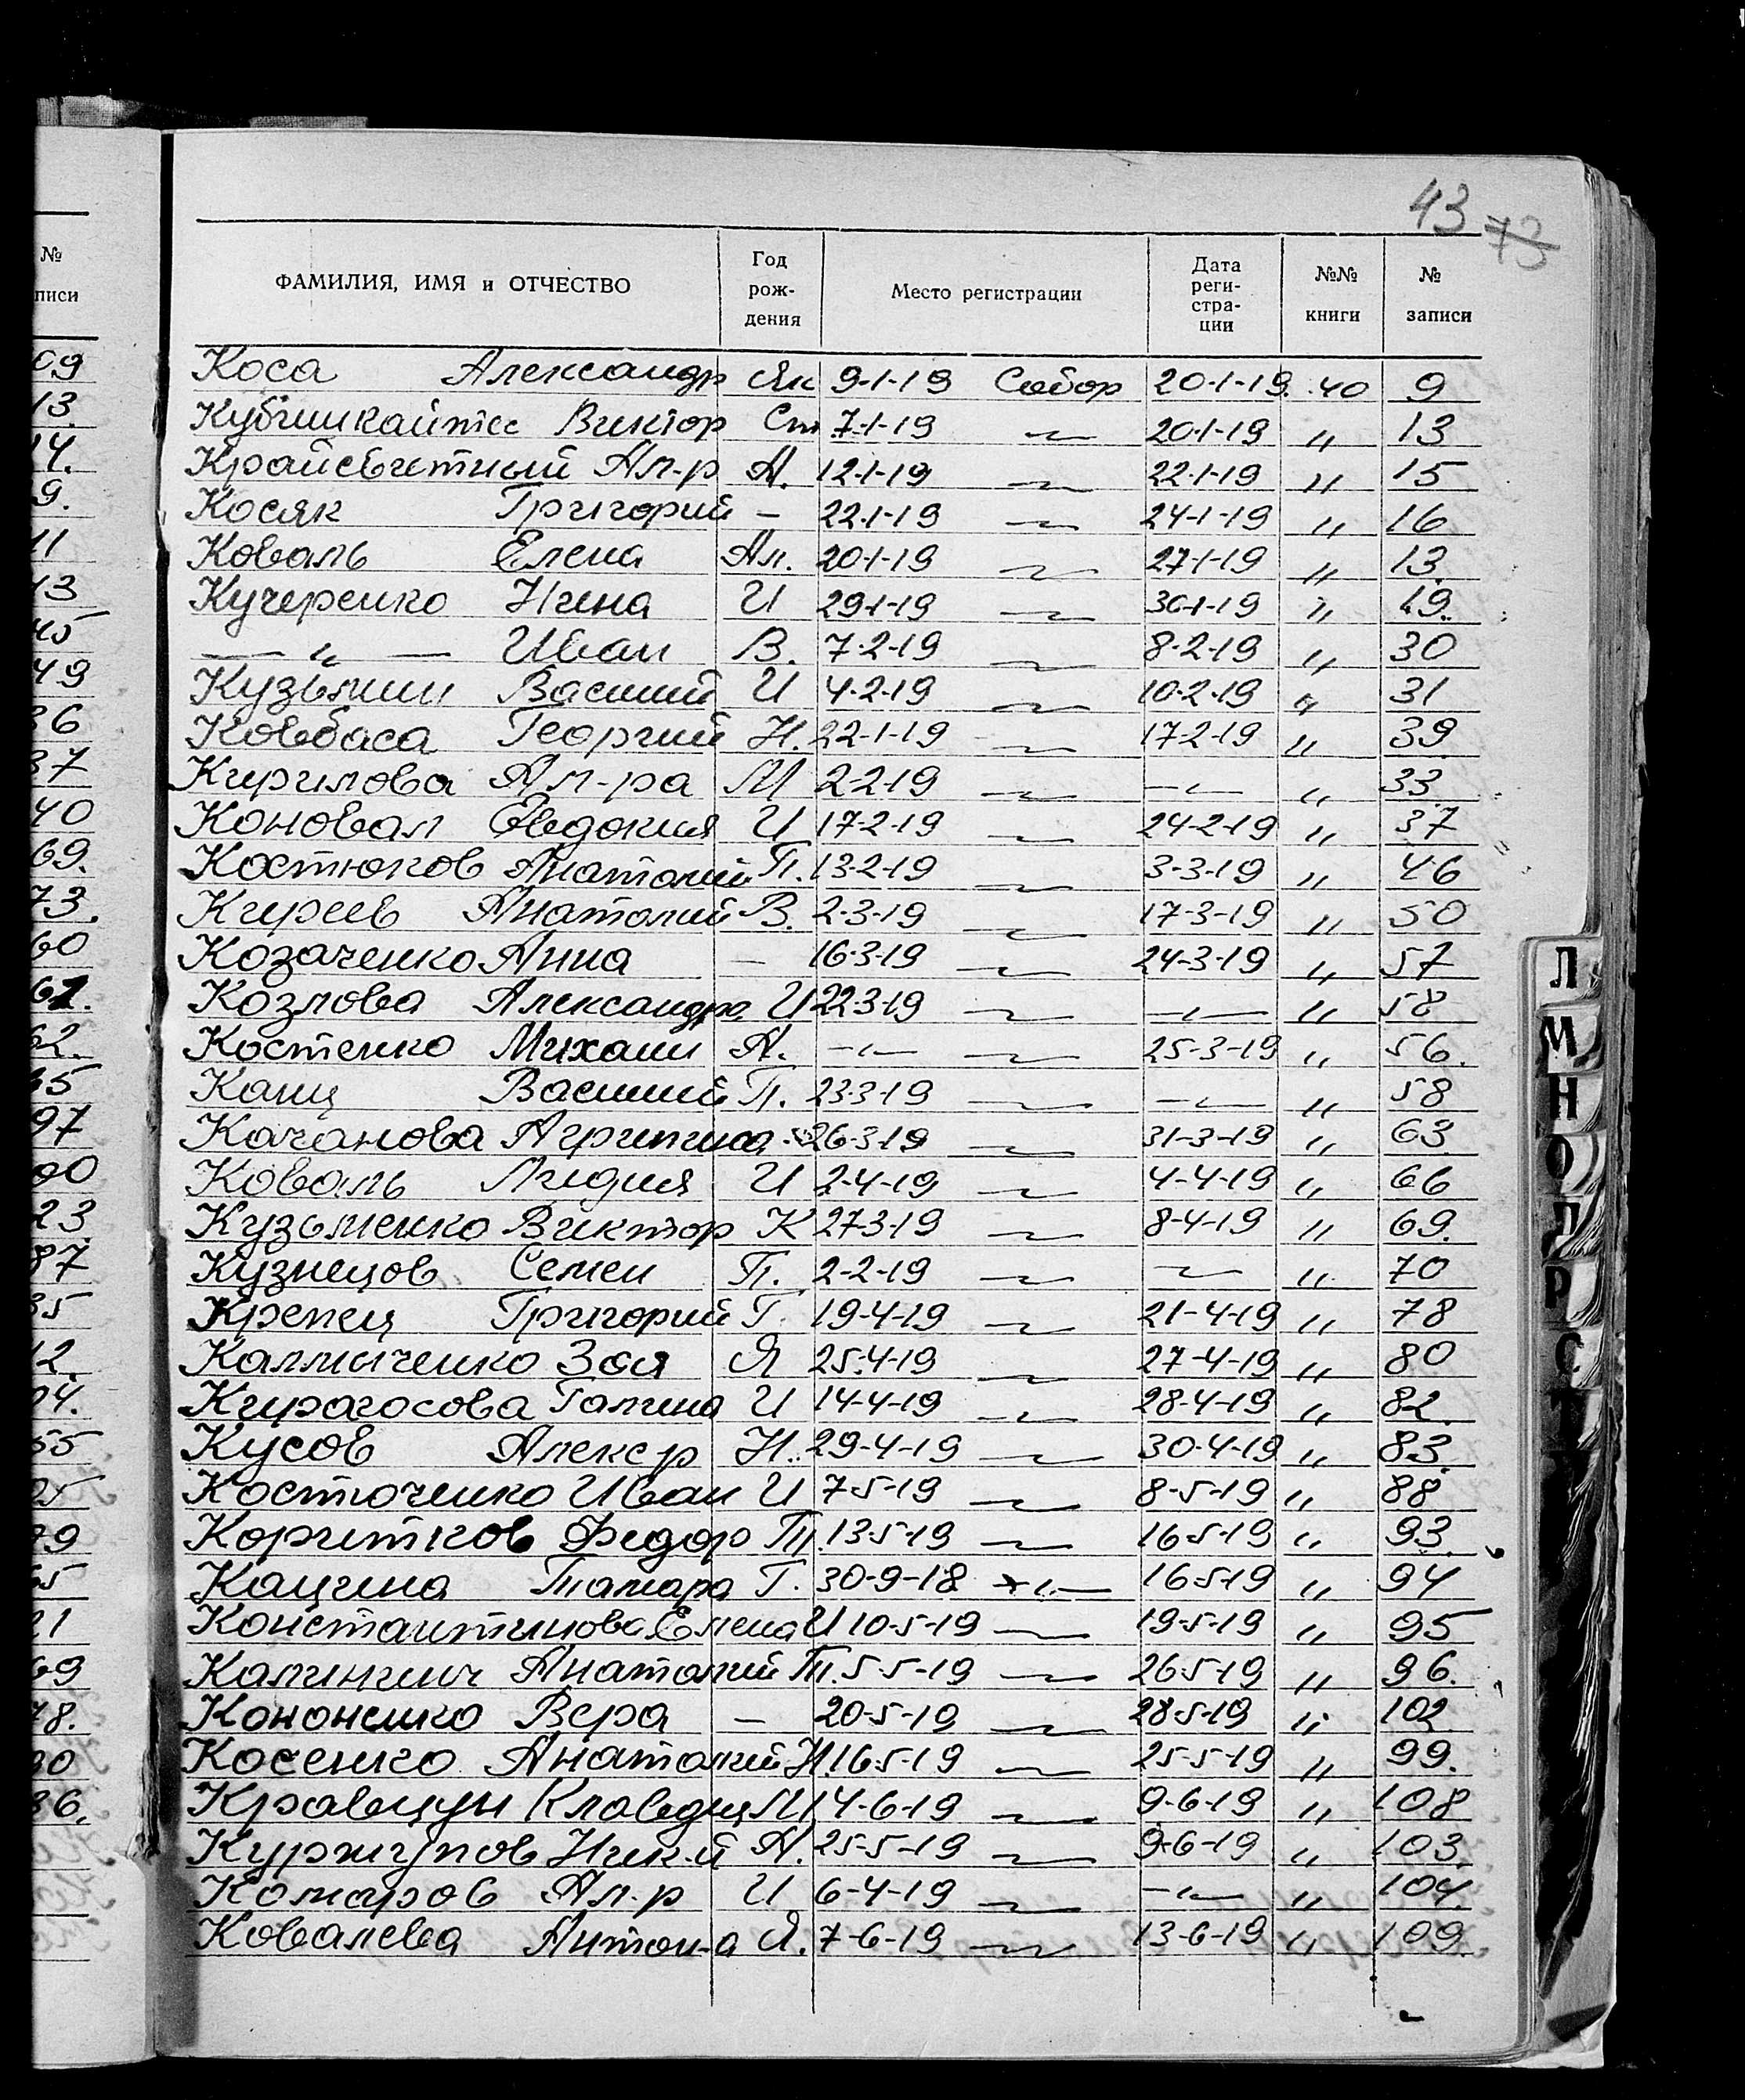 43 73
ФАМИЛИЯ, ИМЯ и ОТЧЕСТВО Год рождения Место регистрации Дата регистрации №№ книги № записи
Коса Александр Як 9-1-19 Собор 20-1-19. 40 9
Виктор Ст. 7-1-19 〃 20-1-19 〃 13
Ал-р А. 12-1-19 〃 22-1-19 〃 15
Косяк Григорий – 22-1-19 〃 24-1-19 〃 16
Коваль Елена Ал. 20-1-19 〃 27-1-19 〃 13
Кучеренко Нина И 29-1-19 〃 30-1-19 〃 19.
— 〃 — Иван В. 7-2-19 〃 8-2-19 〃 30
Кузьмин Василий И 4-2-19 〃 10-2-19 〃 31
Ковбаса Георгий Н. 22-1-19 〃 17-2-19 〃 39
Кирилова Ал-ра М 2-2-19 〃 — 〃 — 〃 33
Коновал Евдокия И 17-2-19 〃 24-2-19 〃 37
Костюков Анатолий П. 13-2-19 〃 3-3-19 〃 46
Киреев Анатолий В. 2-3-19 〃 17-3-19 〃 50
Козаченко Анна – 16-3-19 〃 24-3-19 〃 57
Козлова Александра И 22-3-19 〃 — 〃 — 〃 58
Костенко Михаил А. — 〃 — 〃 25-3-19 〃 56.
Кащ Василий П. 23-3-19 〃 — 〃 — 〃 58
Качанова Агрипина 26-3-19 〃 31-3-19 〃 63
Коваль Лидия И 2-4-19 〃 4-4-19 〃 66
Кузьменко Виктор К 27-3-19 〃 8-4-19 〃 69.
Кузнецов Семен П. 2-2-19 〃 〃 〃 70
Крепец Григорий Г. 19-4-19 〃 21-4-19 〃 78
Калмыченко Зоя Я 25-4-19 〃 27-4-19 〃 80
Кирагосова Галина И 14-4-19 〃 28-4-19 〃 82.
Кусов Алекср Н. 29-4-19 〃 30-4-19 〃 83.
Косточенко Иван И 7-5-19 〃 8-5-19 〃 88
Коритков Федор Т. 13-5-19 〃 16-5-19 〃 93.
Кацина Тамара Г. 30-9-18 〃 16-5-19 〃 94
Константинова Елена И 10-5-19 〃 19-5-19 〃 95
Анатолий Т. 5-5-19 〃 26-5-19 〃 96.
Кононенко Вера – 20-5-19 〃 28-5-19 〃 102
Косенко Анатолий Н. 16-5-19 〃 25-5-19 〃 99.
Кравцун Клавдия М 4-6-19 〃 9-6-19 〃 108
Куржупов Ник-й А. 25-5-19 〃 9-6-19 〃 103.
Комаров Ал-р И 6-4-19 〃 — 〃 — 〃 104.
Ковалева Антон-а Я. 7-6-19 〃 13-6-19 〃 109.
№
писи
09
13.
14.
9.
11
13
45
49
36
37
40
69.
73.
60
61.
62.
65
97
00
23
87
35
12.
04.
55
79
65
21
69
78.
90
86.
Л
М
Н
О
П
Р
С
Т